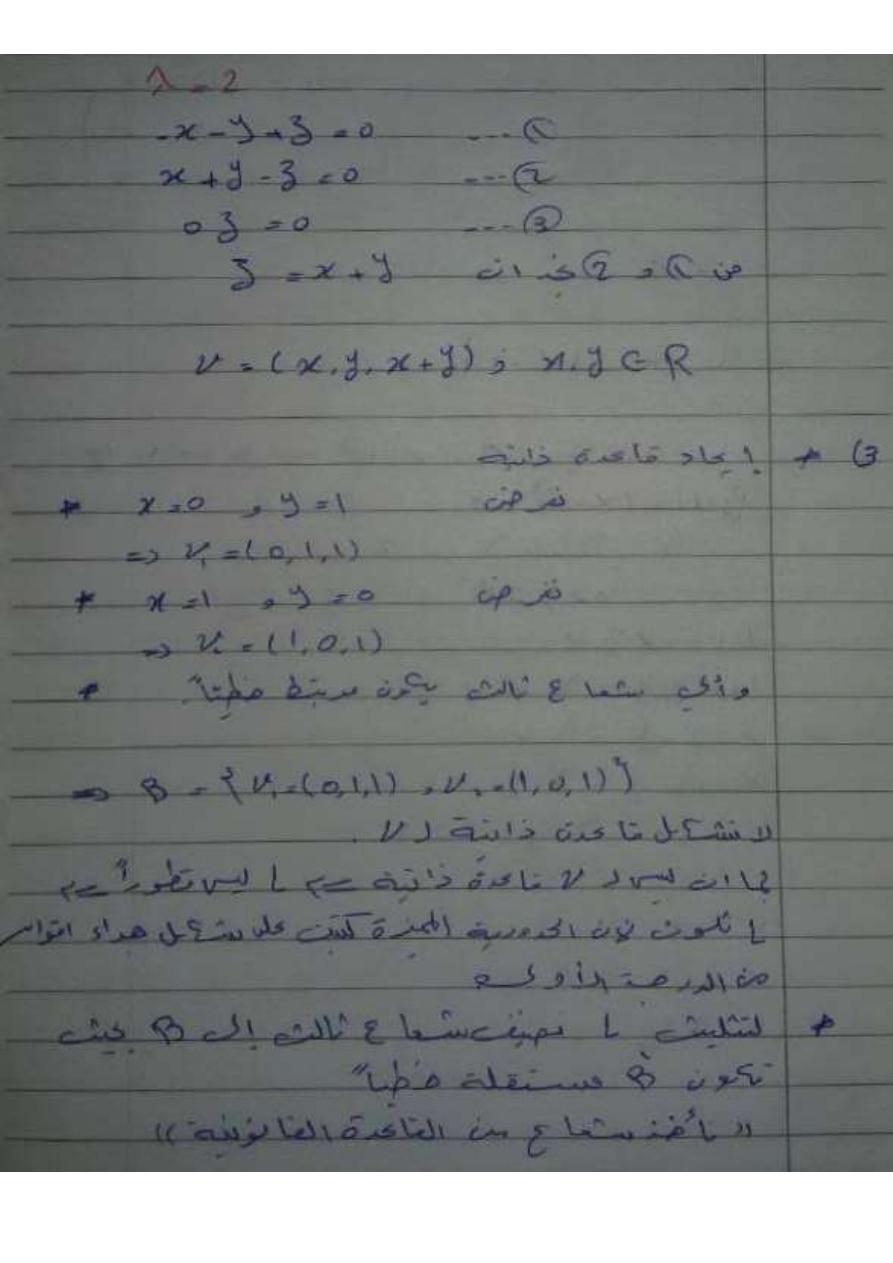 λ = 2
-x - y + z = 0 --- ①
x + y - z = 0 --- ②
0z = 0 --- ③
من ① و ② نجد ان z = x + y
v = (x, y, x+y) ; x, y ∈ R
3) * إيجاد قاعدة ذاتية
نفرض x = 0 , y = 1 *
=> v₁ = (0, 1, 1)
نفرض x = 1 , y = 0 *
=> v₂ = (1, 0, 1)
وأي شعاع ثالث يكون مرتبط خطياً. *
=> B = {v₁ = (0,1,1) , v₂ = (1,0,1)}
لا تشكل قاعدة ذاتية لـ V.
بما ان ليس لـ V قاعدة ذاتية <= L ليس قطوراً <=
L تلوث لأن الحدودية المميزة كتبت على شكل جداء اقواس
من الدرجة الأولى
* لتثليث L نضيف شعاع ثالث إلى B بحيث
تكون B' مستقلة خطياً
"نأخذ شعاع من القاعدة القانونية"